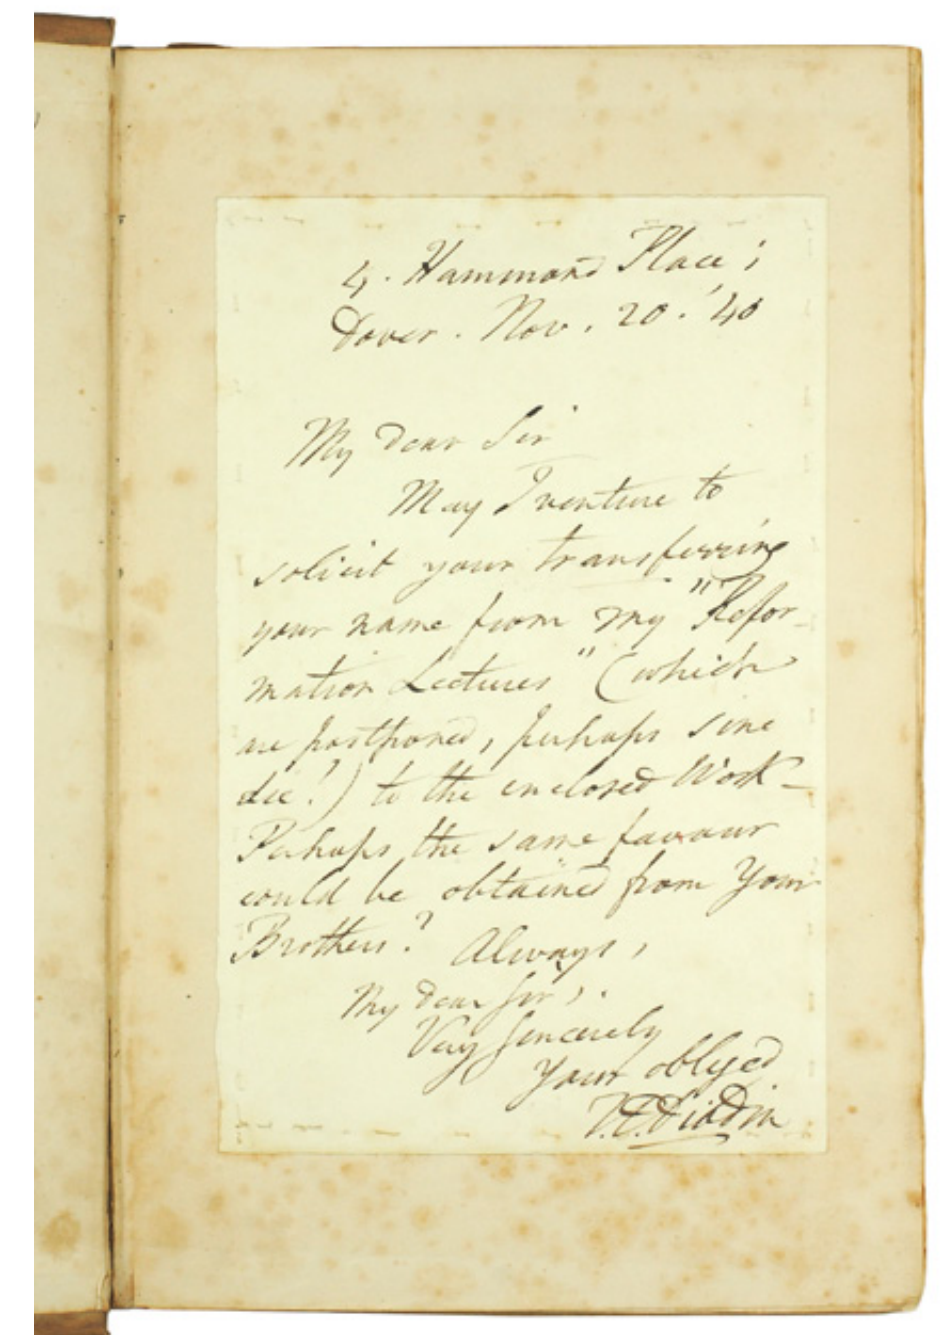 4. Hammond Place;
Dover. Nov. 20. '40
My dear Sir
May I venture to
solicit your transferring
your name from my "Refor-
mation Lectures" (which
are postponed, perhaps sine
die!) to the enclosed Work -
Perhaps the same favour
could be obtained from your
Brothers? Always,
My dear Sir,
Very sincerely
Your obliged
T.F. Dibdin